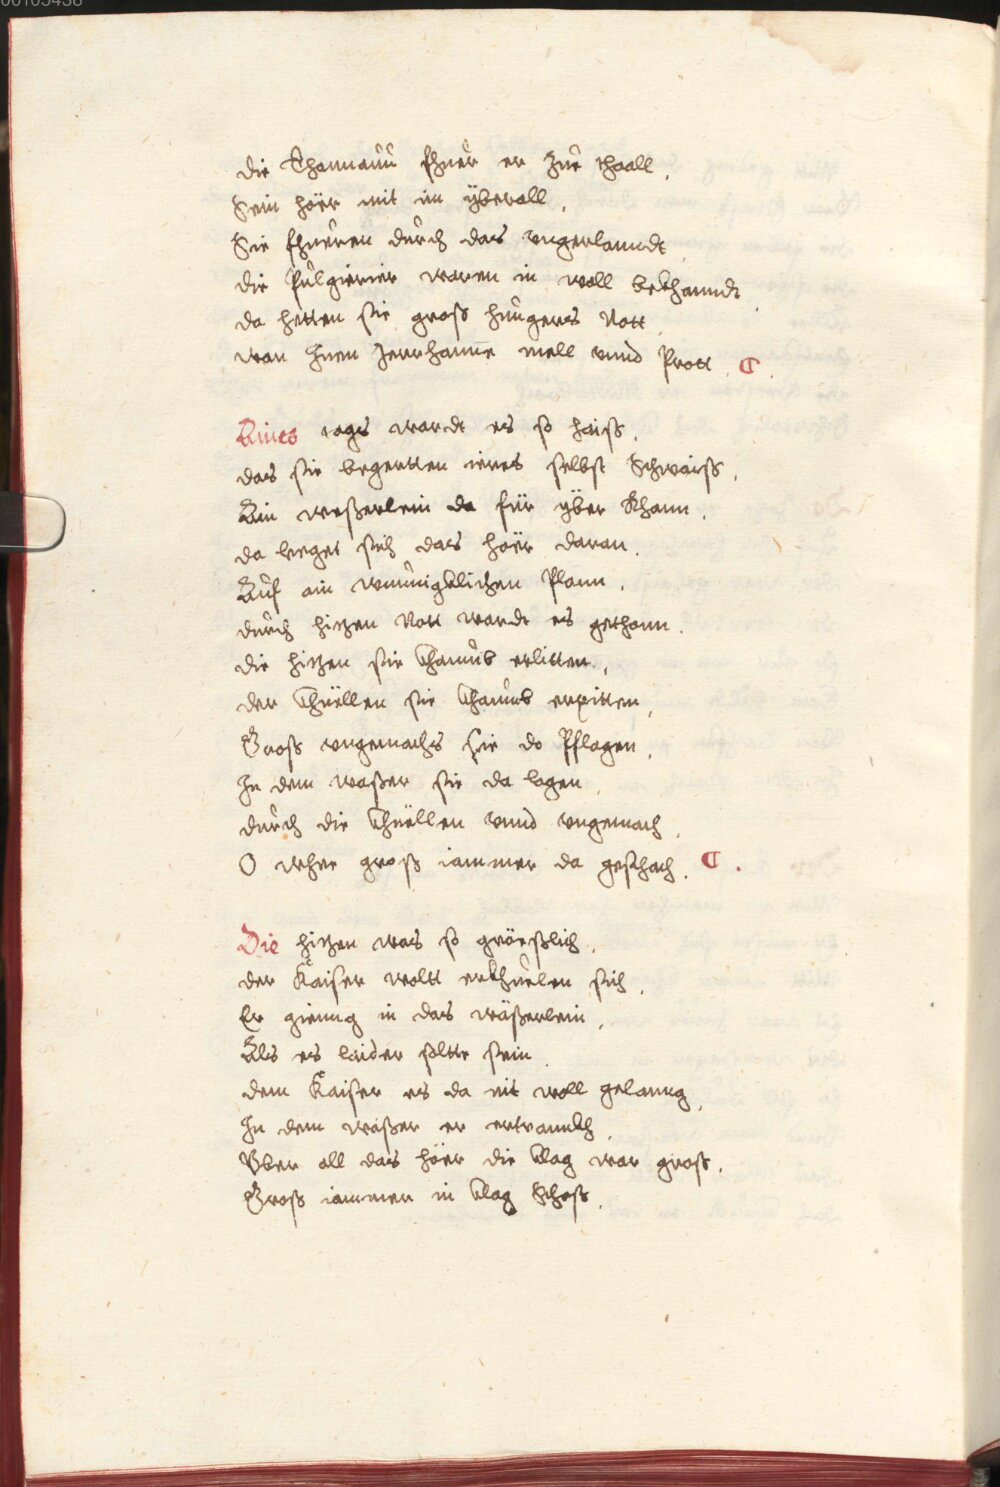 die Thonnaŭŭ fhŭer er zŭe thaall,
Sein hör mit im ÿberall,
Sie fhueren dŭrch das vngerlanndt
die Pŭlgierier waren in woll bekhanndt,
da hetten sie groß hŭngers Nott
wan Inen zerrhanne mell vnnd Prott
Aines tags wardt es so haiß,
das sie begertten ieres selbst Schwaiß,
Ain weßerlein da für ÿber Rhann,
da leeget sich das hör daran,
Aŭf ain wŭnnigklichen Plann,
dŭrch hitzen Nott wardt es gethann,
die hitzen sie khaŭmb erlitten,
der khüellen sie khaŭmb erpitten,
Groß vngemachs sie do Pflagen,
In dem waßer sie da lagen,
dŭrch die khüellen vnnd vngemach,
O wehee groß iammer da geschach,
Die hitzen was so größlich,
der Kaiser wollt erkhŭelen sich,
Er gienng in das wäßerlein,
Als es laider sollte sein,
dem Kaiser es da nit woll gelanng,
In dem waßer er ertrannkh,
Vber all das hör die klag war groß,
Groß iammer in klag Schoß,